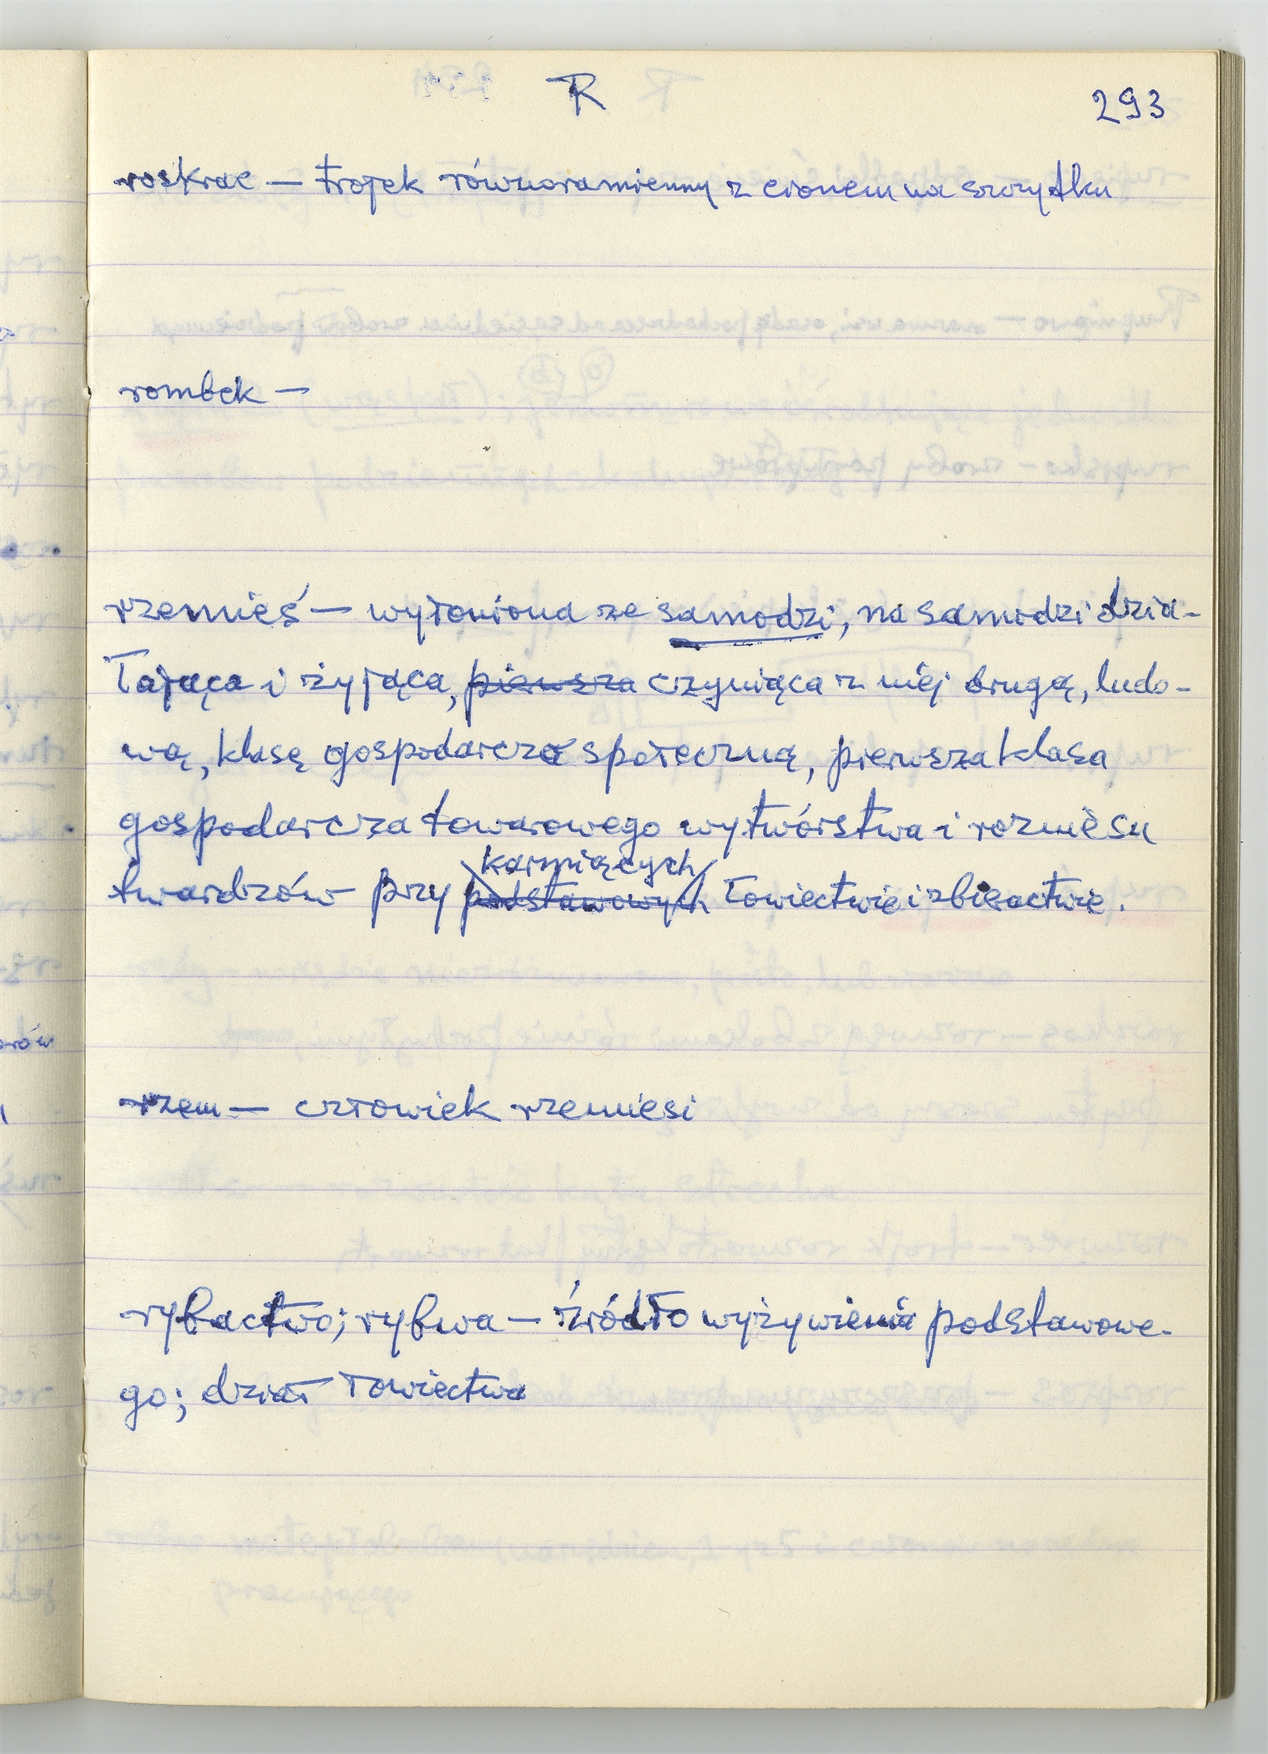 R
293
roskrac — trojek równoramienny z cionem na szczytku
rombek —
rzemieś — wyłoniona ze samodzi, na samodzi dzia-
łająca i żyjąca, pierwsza czyniąca z niej drugą, ludo-
wą, klasę gospodarczo społeczną, pierwsza klasa
gospodarcza towarowego wytwórstwa i rozmiesu
karmiących
twardzów przy podstawowych łowiectwie i zbieractwie.
rzem — człowiek rzemiesi
rybactwo; rybwa — źródło wyżywienia podstawowe-
go; dział łowiectwa